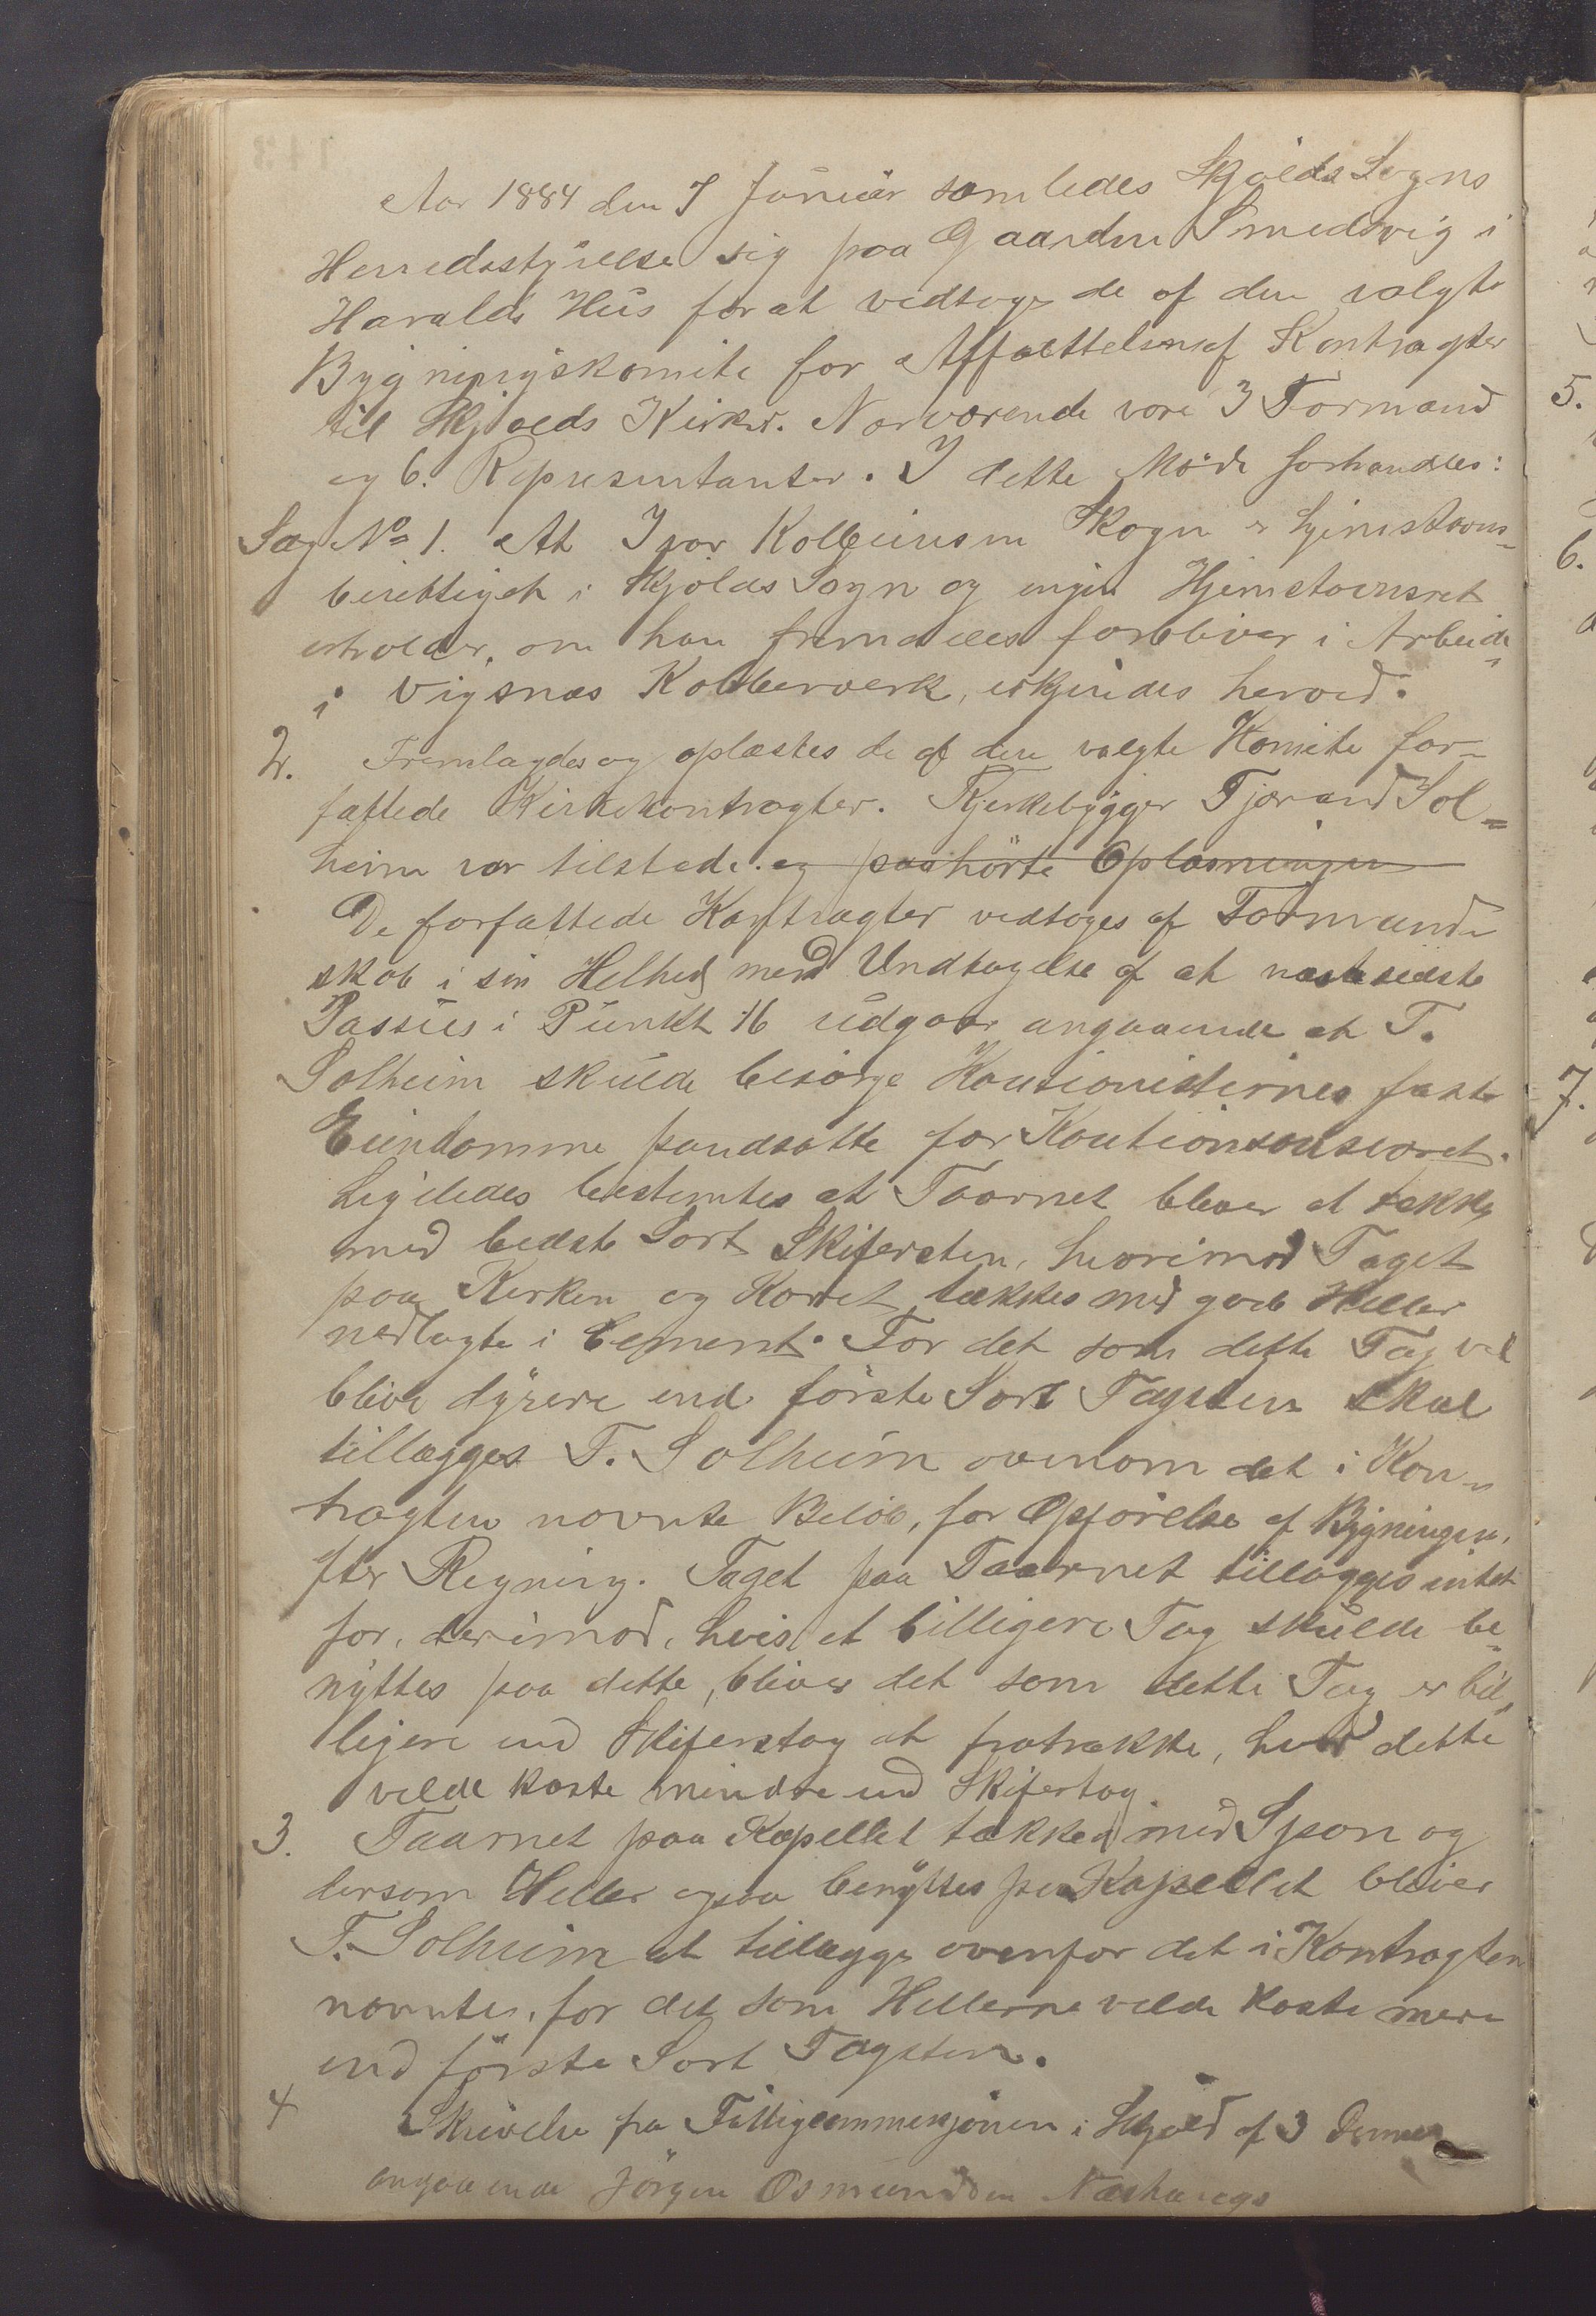 Aar 1884 den 7 Januar samledes Skjolds Sogns
Herredsstyrelse sig paa Gaarden Smedsvig i
Haralds Hus for at vedtage de af den valgte
Bygningskomite for Affattelsen af Kontragter
til Skjolds Kirker. Nærværende vare 3 Formænd
og 6. Representanter. I dette Møde forhandles:
Sag No 1. At Ivar Kolbeinsen Skogn er hjemstavns-
berettiget i Skjolds Sogn og ingen Hjemstavnsret
erholder, om han fremdeles forbliver i Arbeide
i Vigsnæs Kobberværk, erkjendes herved.
2. Fremlagdes og oplæstes de af den valgte Komite for-
fattede Kirkekontragter. Kjerkebygger Tjærand Sol=
heim var tilstede. og paahørte Oplæsningen
De forfattede Kontragter vedtoges af Formand-
skab i sin Helhed med Undtagelse af at næstsidste
Passus i Punkt 16 udgaar angaaende at T.
Solheim skulde besørge Kautionisternes faste
Eiendomme pandsatte for Kautionsansvaret.
Ligeledes bestemtes at Taarnet bliver at tække
med bedste Sort Skifersten, hvorimod Taget
paa Kirken og Koret tækkes med gode Heller
nedlagte i Cement. For det som dette Tag vil
blive dyrere end første Sort Tagsten skal
tillægges T. Solheim ovenom det i Kon-
tragten nævnte Beløb, for Opførelse af Bygningen,
efter Regning. Taget paa Taarnet tillægges intet
for, derimod, hvis et billigere Tag skulde be-
nyttes paa dette, bliver det som dette Tag er bil-
ligere end Skiferstag at fratrække, hvad dette
vilde koste mindre end Skifertag.
3. Taarnet paa Kapellet tækkes med Spon og
dersom Heller ogsaa benyttes paa Kapellet bliver
T. Solheim at tillægge ovenfor det i Kontragten
nævnte, for det som Hellerne vilde koste mere
end første Sort Tagsten.
4 Skrivelse fra Fattigcommisjonen i Skjold af 3 Dennes
angaaende Jørgen Osmundsen